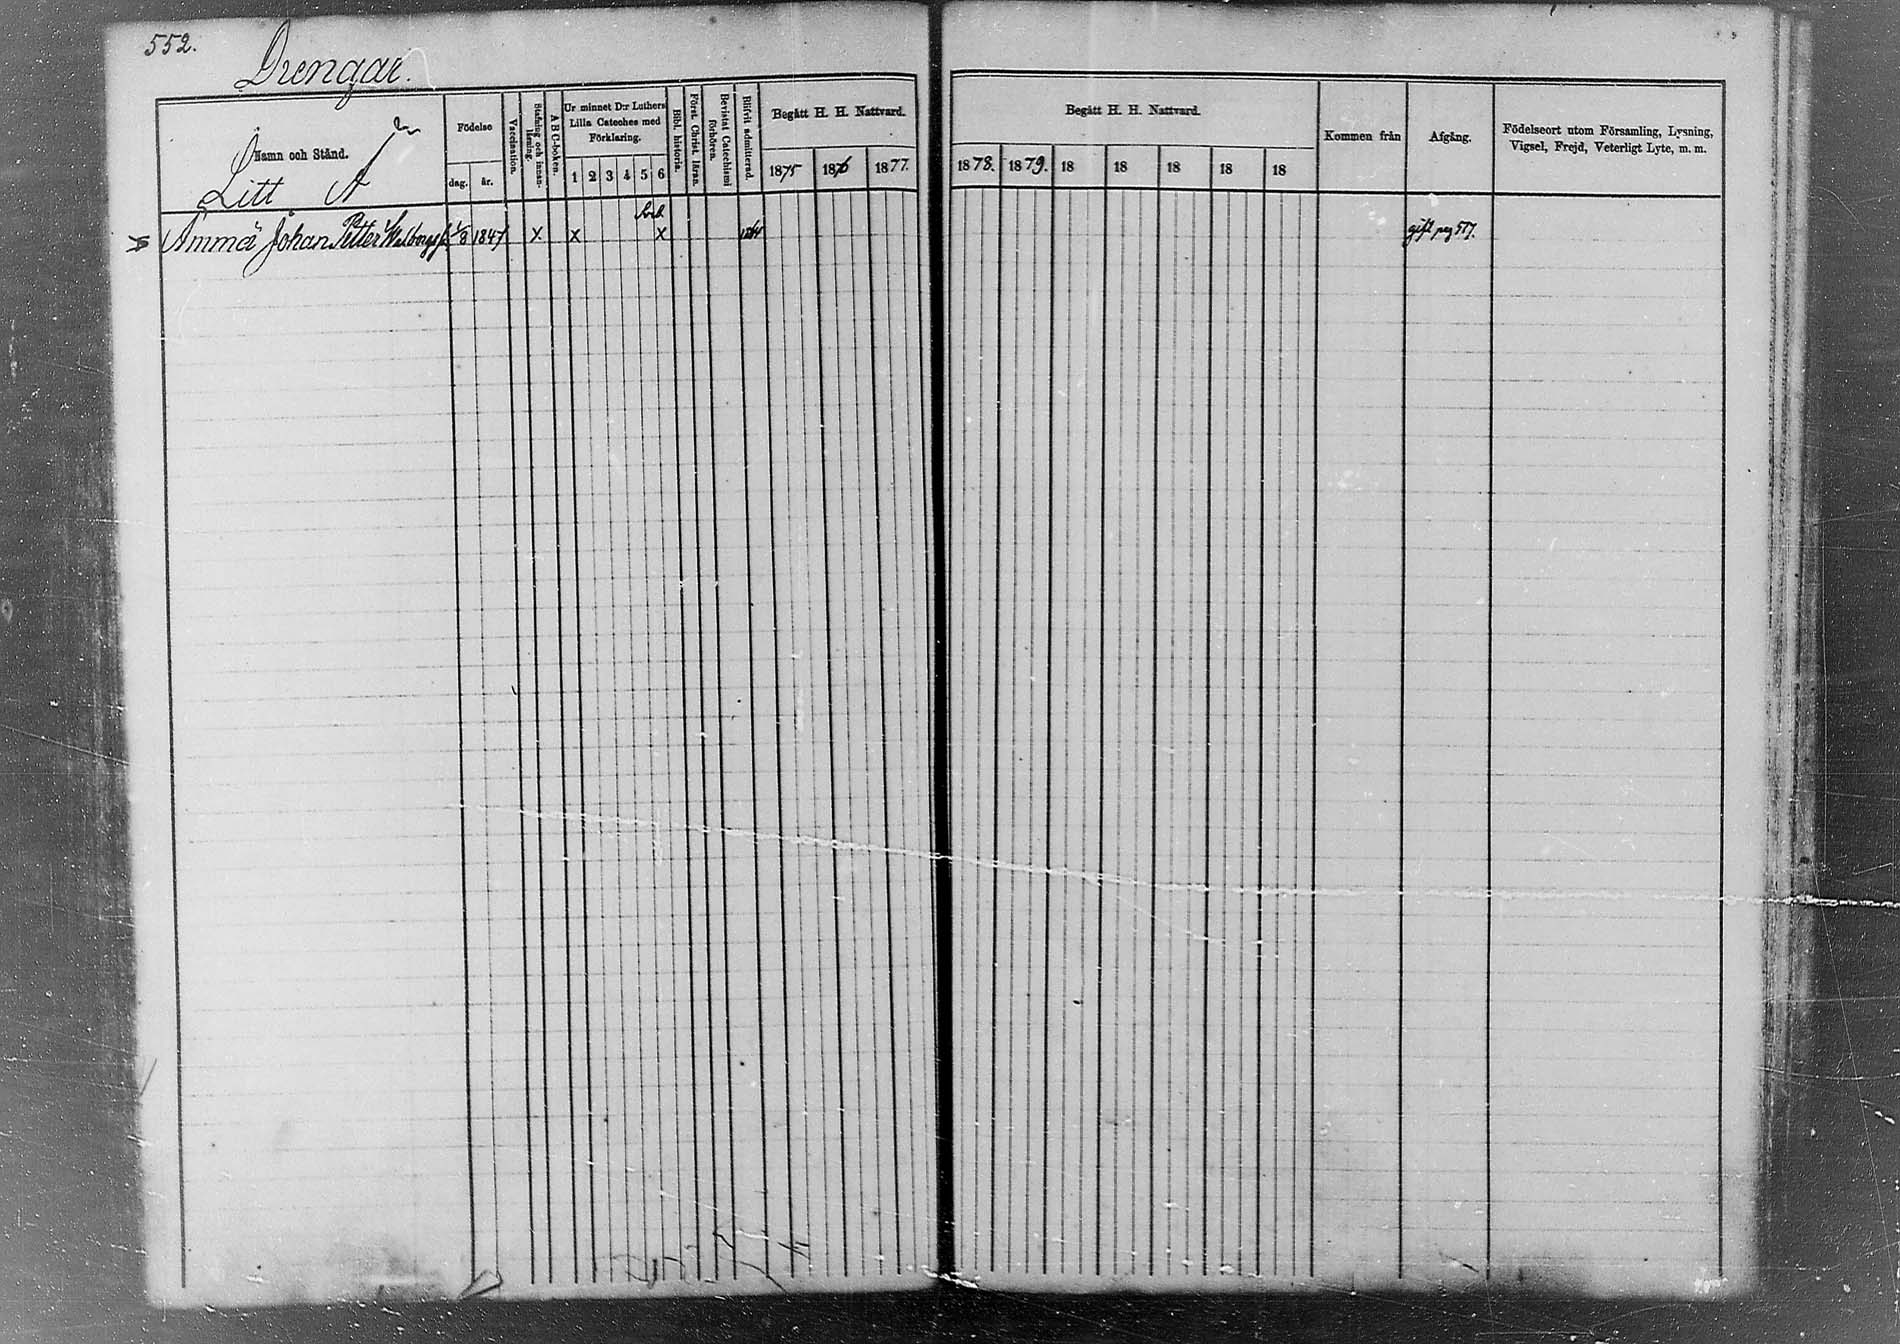 552.
Drengar.
Namn och Stånd.
Litt A
Födelse
dag.
år.
Vaccination.
Stafning och innan-
läsning.
ABC-boken.
Ur minnet D:r Luthers
Lilla Cateches med
Förklaring.
1 2 3 4 5 6
Bibl. historia.
Först. Christ. läran.
Bevistat Catechismi
förhören.
Blifvit admitterad.
Begått H. H. Nattvard.
1875 1876 1877.
Begått H. H. Nattvard.
1878. 1879. 18 18 18 18 18
Kommen från
Afgång.
Födelseort utom Församling, Lysning,
Vigsel, Frejd, Veterligt Lyte, m. m.
Johan Petter 1847 X X X gift pag 577.